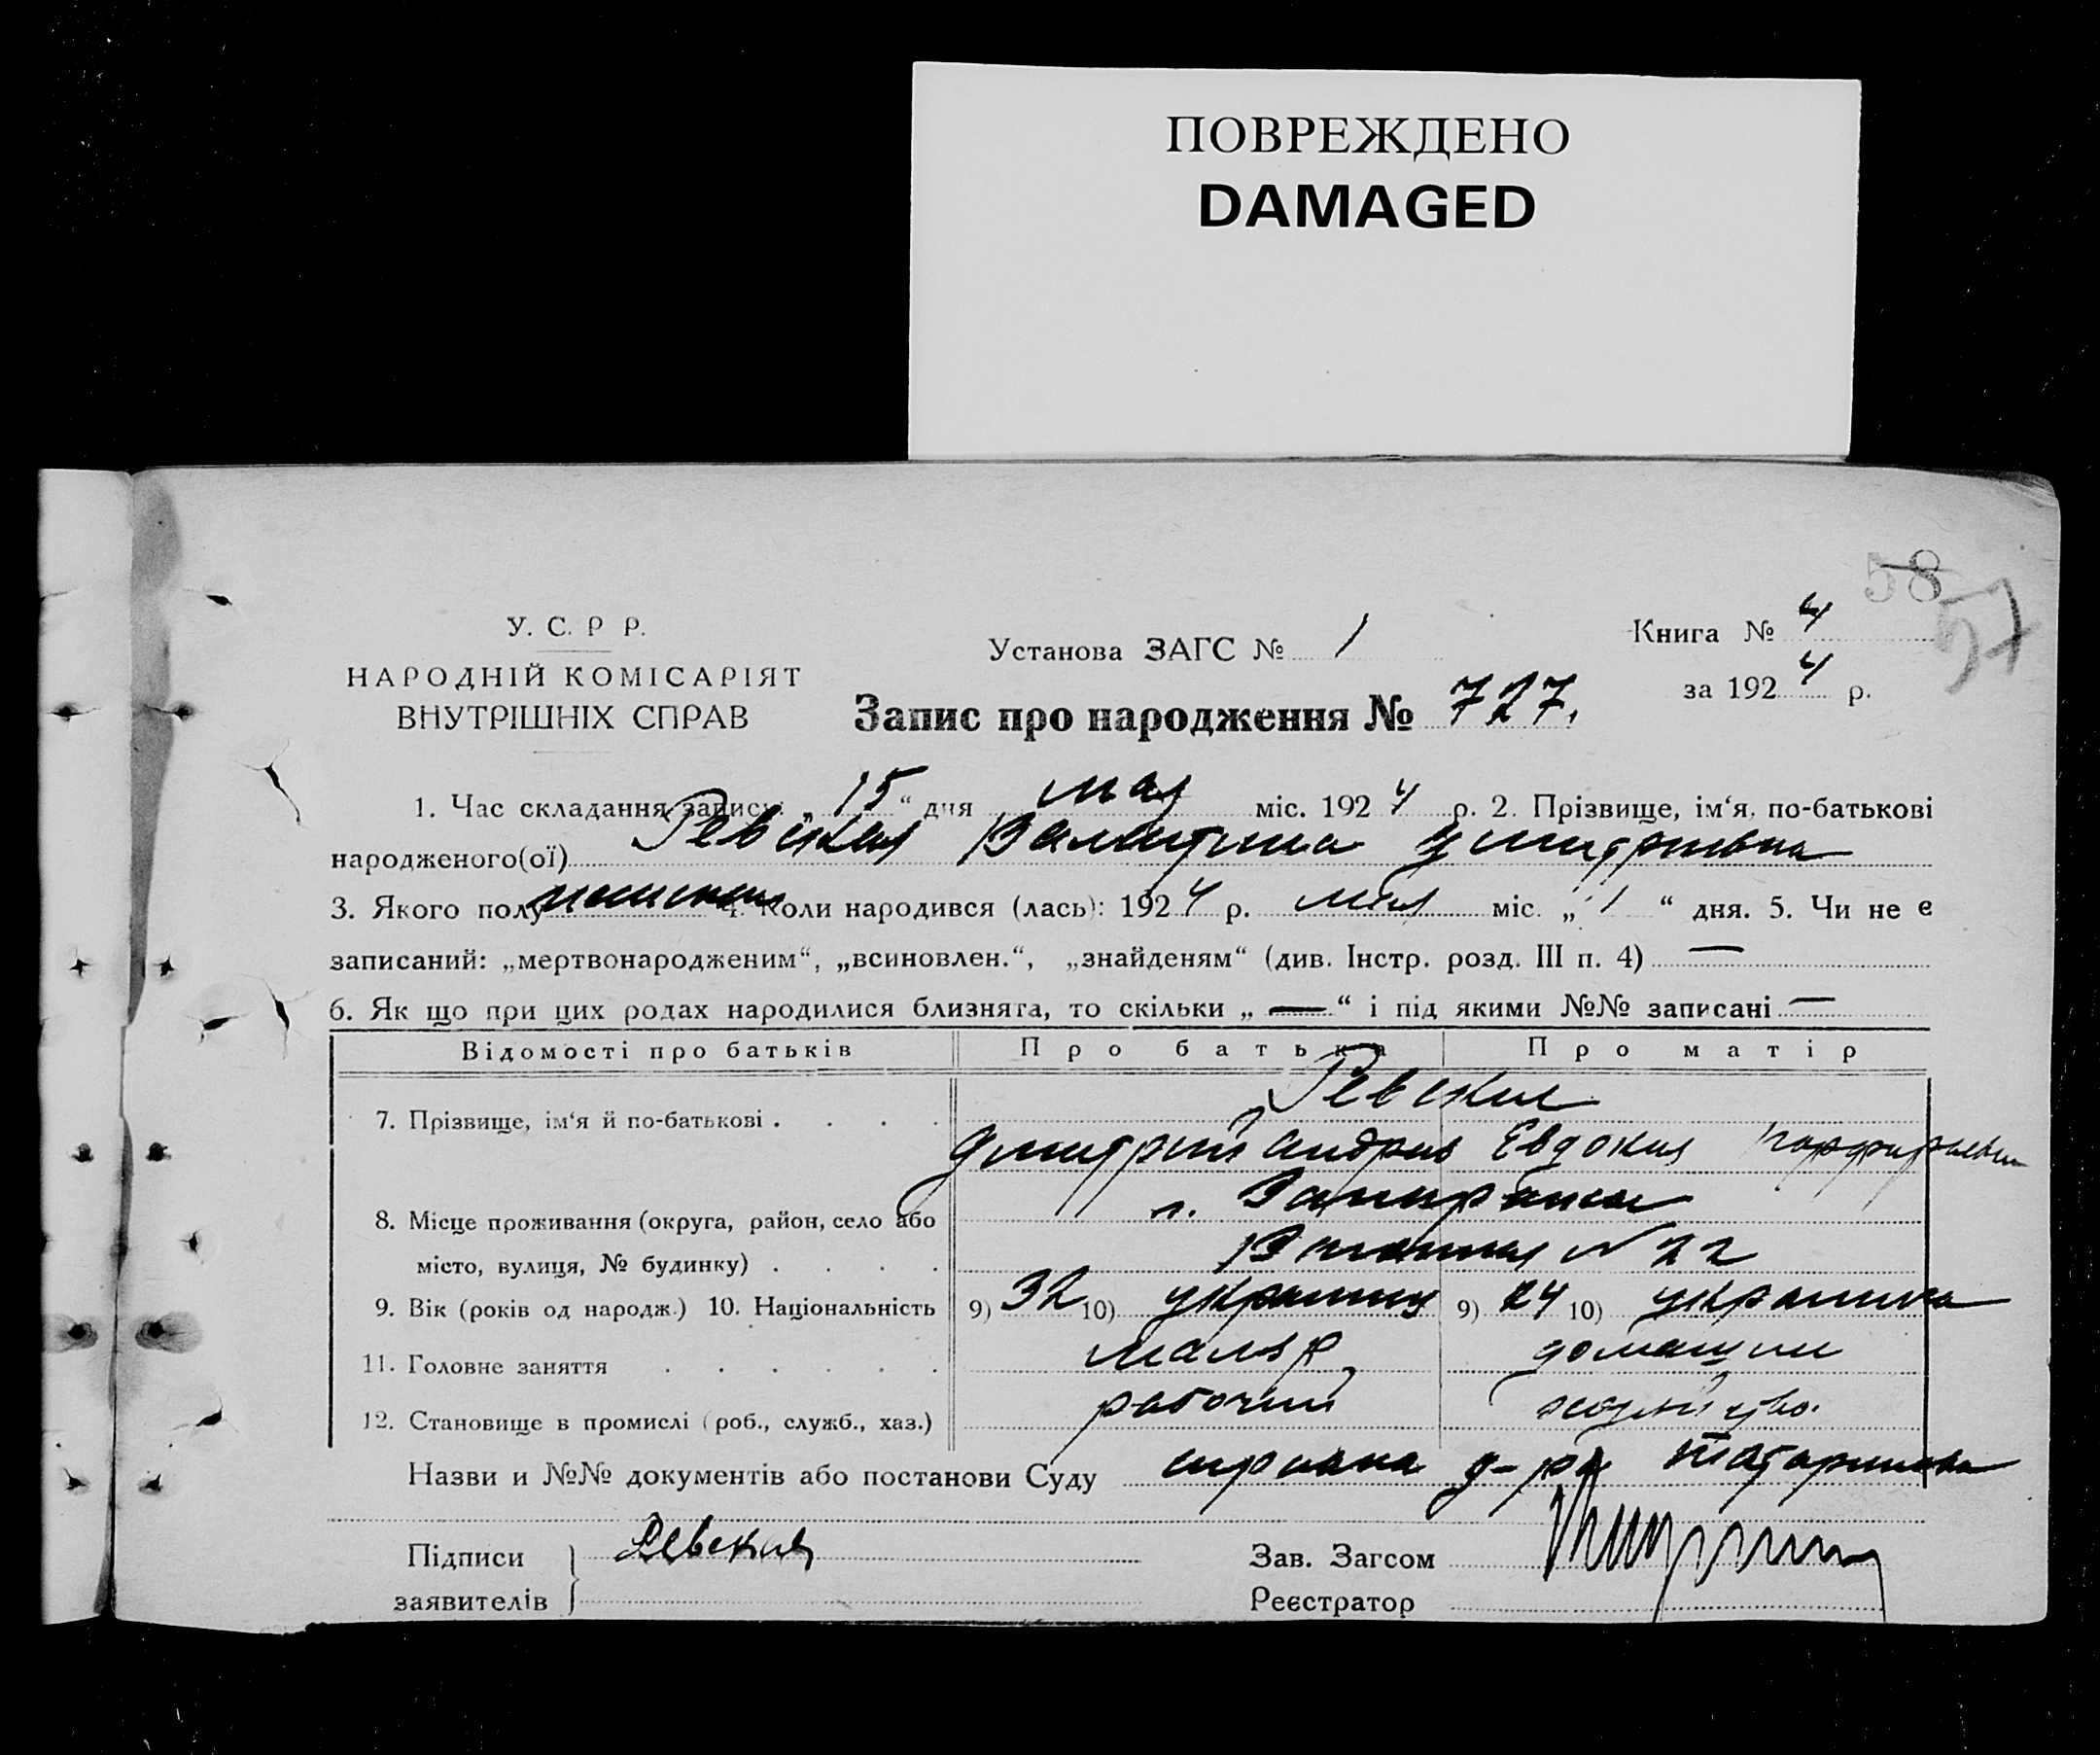 ПОВРЕЖДЕНО
DAMAGED
58
57
У. С. Р Р.
НАРОДНІЙ КОМІСАРІЯТ
ВНУТРІШНІХ СПРАВ
Установа ЗАГС № 1
Книга № 4
за 1924 р.
Запис про народження № 727.
1. Час складання запису: „ 15 “ дня мая міс. 1924 р. 2. Прізвище, ім‘я, по-батькові
народженого(ої) Ревская Валентина Дмитриевна
3. Якого полу женский 4. Коли народився (лась): 1924 р. мая міс. „ 1 “ дня. 5. Чи не є
записаний: „мертвонародженим“, „всиновлен.“, „знайденям“ (див. Інстр. розд. III п. 4) —
6. Як що при цих родах народилися близнята, то скільки „ — “ і під якими №№ записані —
Відомості про батьків Про батька Про матір
7. Прізвище, ім‘я й по-батькові . . . . Ревские
Дмитрий Андрев Евдокия Порфирьевн
8. Місце проживання (округа, район, село або г.
місто, вулиця, № будинку) . . . . N 22
9. Вік (років од народж.) 10. Національність 9) 32 10) украинец 9) 24 10) украинка
11. Головне заняття . . . . . . маляр домашнее
12. Становище в промислі (роб., служб., хаз.) рабочий хозяйство.
Назви и №№ документів або постанови Суду справка д-ра Татаринова
Підписи Ревская Зав. Загсом
заявителів Реєстратор